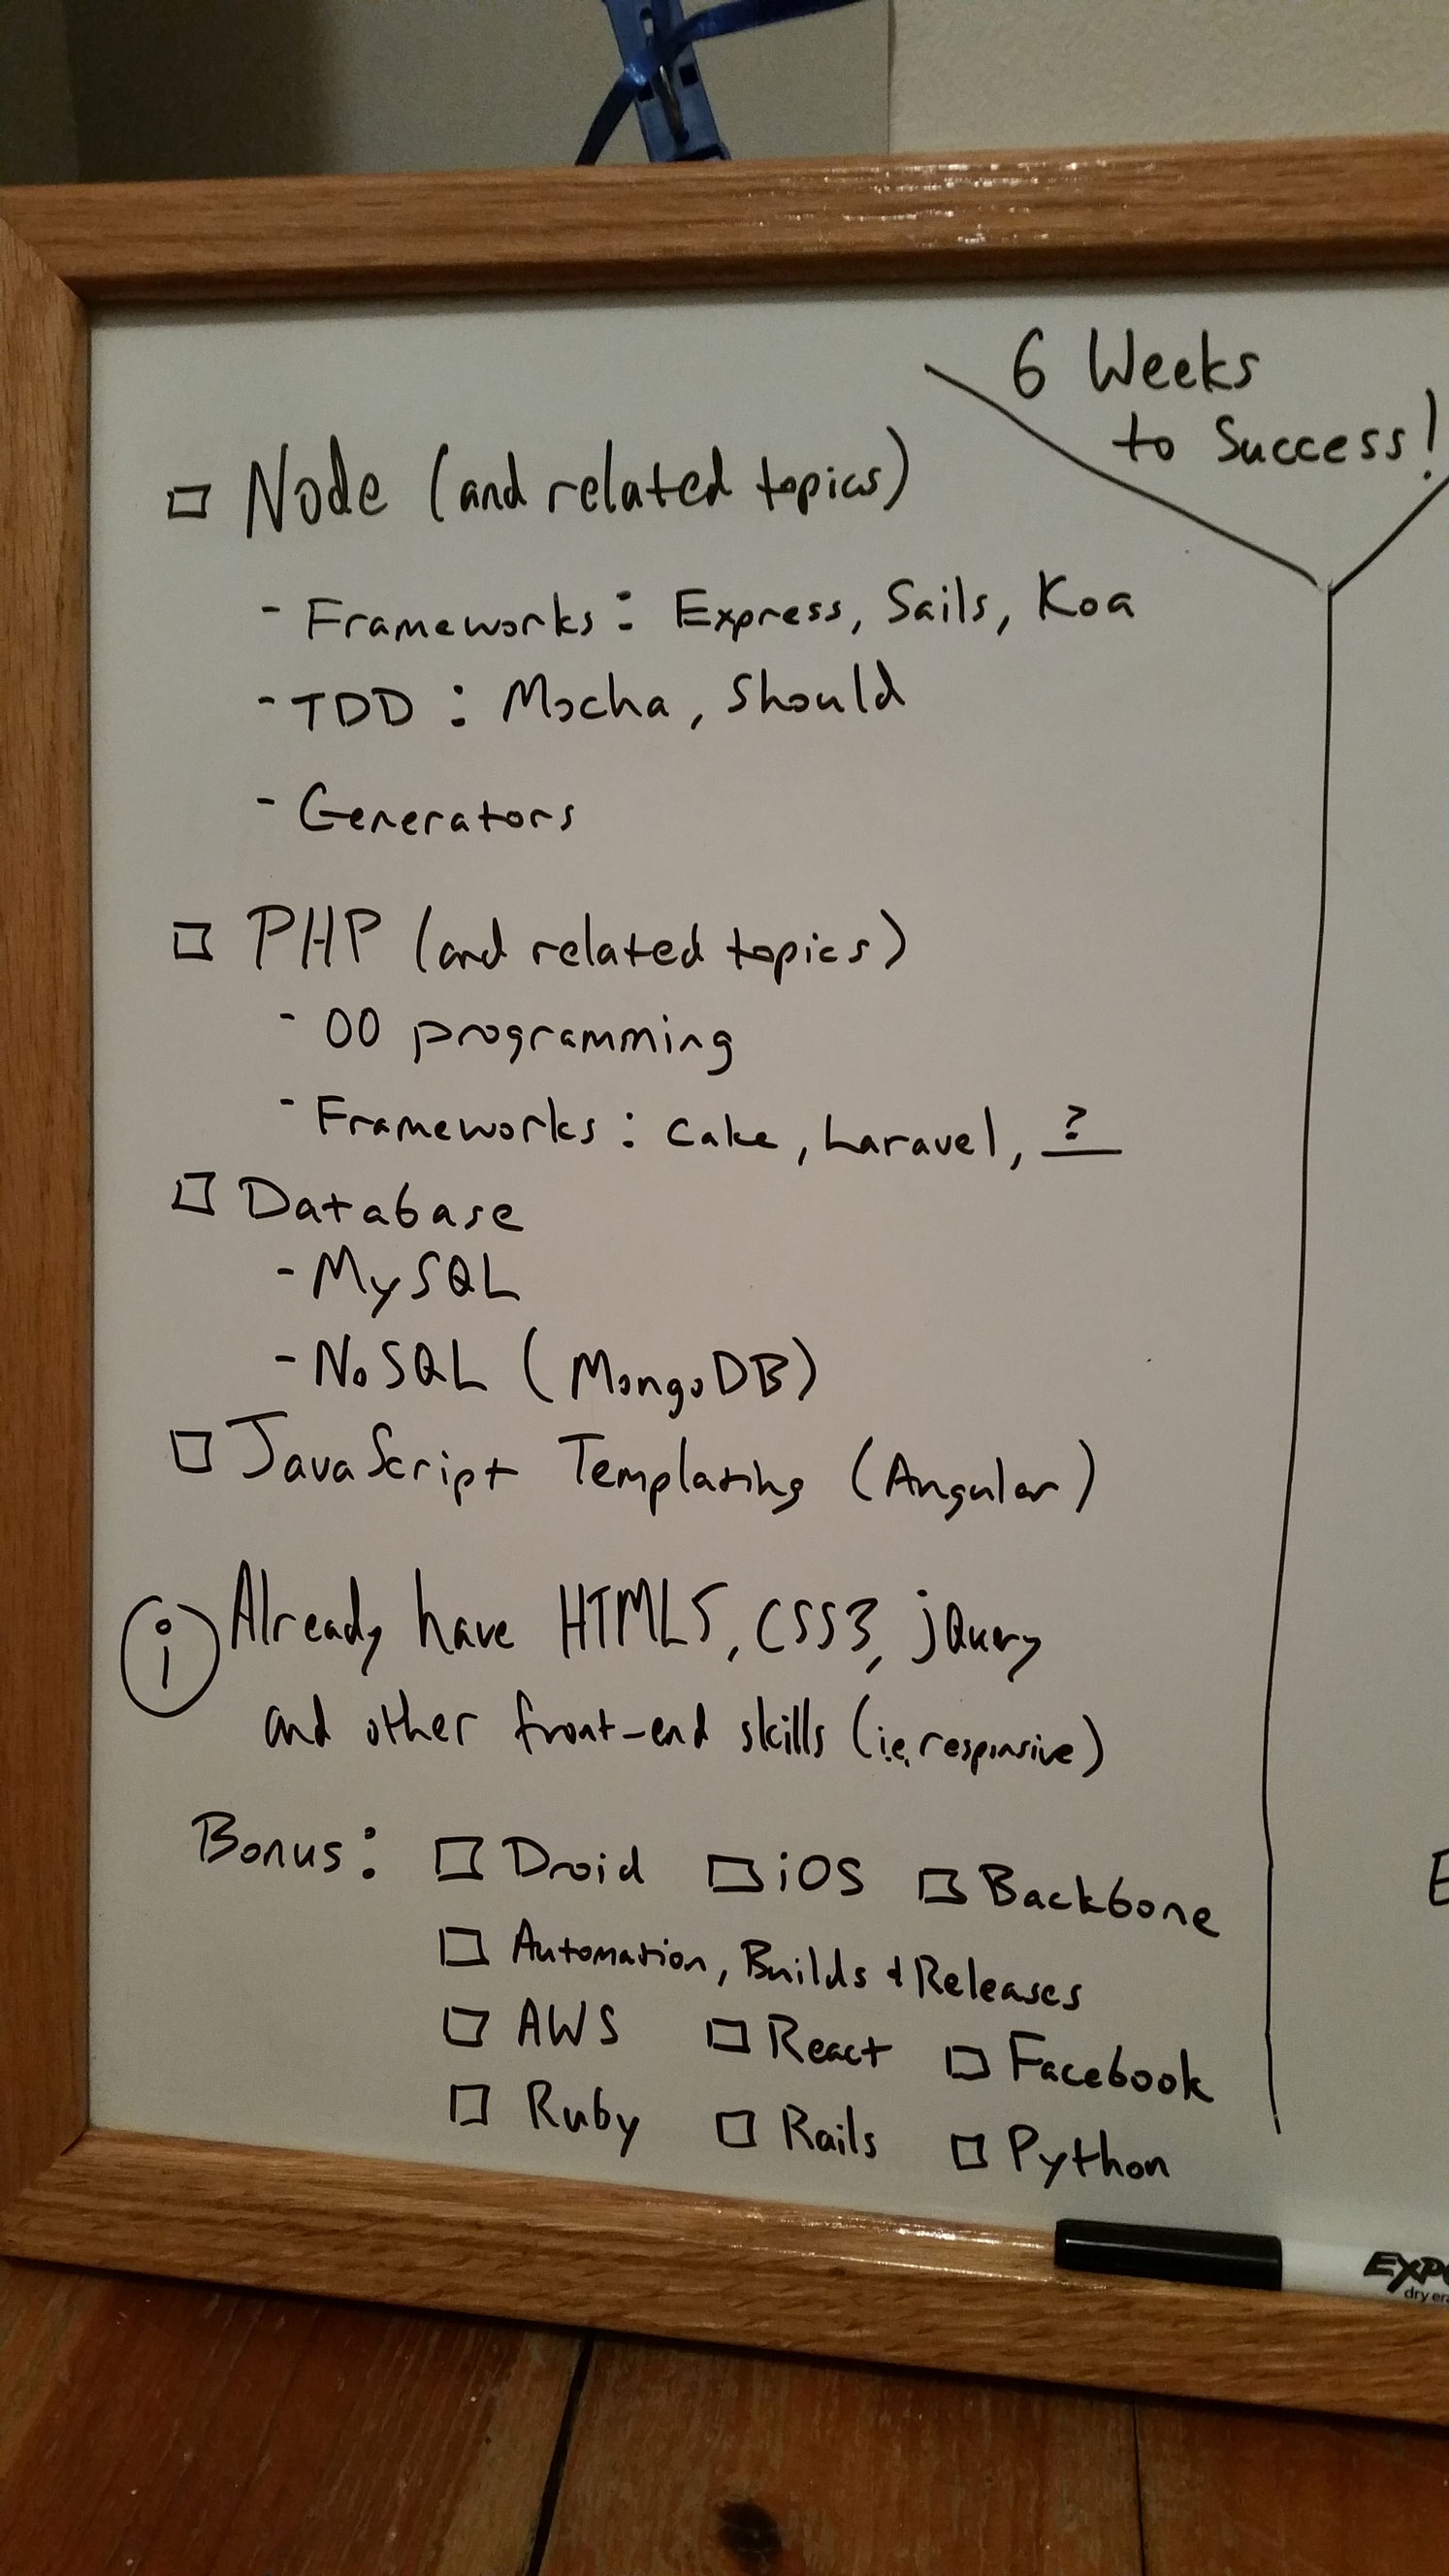 6 Weeks
to Success!
Node (and related topics)
- Frameworks: Express, Sails, Koa
- TDD: Mocha, Should
- Generators
PHP (and related topics)
- OO programming
- Frameworks: Cake, Laravel, ?
Database
- MySQL
- NoSQL (MongoDB)
JavaScript Templating (Angular)
i Already have HTML5, CSS3, jQuery
and other front-end skills (i.e. responsive)
Bonus: Droid iOS Backbone
Automation, Builds + Releases
AWS React Facebook
Ruby Rails Python